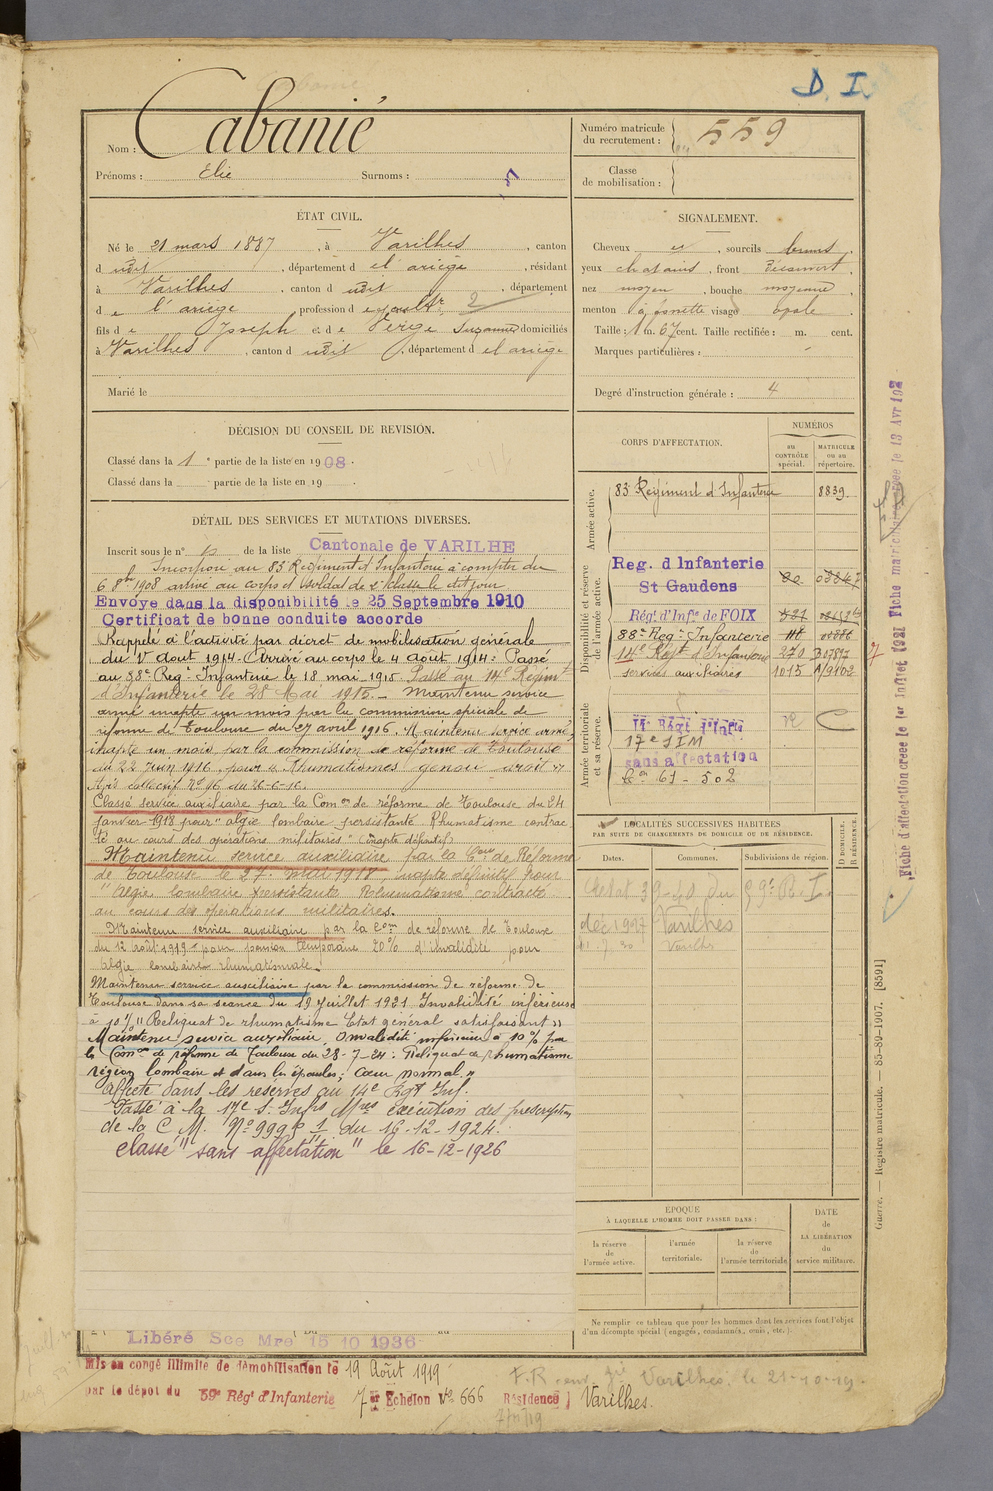 D. I.
Nom : Cabanié
Prénoms : Elie Surnoms :
Numéro matricule du recrutement : 559
Classe de mobilisation :
ÉTAT CIVIL.
Né le 21 mars 1887, à Varilhes, canton
d udit, département d el ariège, résidant
à Varilhes, canton d udit, département
d e l'ariège profession d 2
fils d e Joseph et d e Verge Suzanne domiciliés
à Varilhes, canton d udit, département d el ariège
Marié le
SIGNALEMENT.
Cheveux et, sourcils bruns,
yeux chatains, front découvert,
nez moyen, bouche moyenne,
menton à fossette visage ovale.
Taille : 1 m. 67 cent. Taille rectifiée : m. cent.
Marques particulières :
Degré d'instruction générale : 4
DÉCISION DU CONSEIL DE REVISION.
Classé dans la 1e partie de la liste en 1908.
Classé dans la partie de la liste en 19 .
DÉTAIL DES SERVICES ET MUTATIONS DIVERSES.
Inscrit sous le n° de la liste Cantonale de VARILHE
Incorporé au 83 Régiment d'Infanterie à compter du
6 8bre 1908 arrivé au corps et soldat de 2e classe le dit jour
Envoyé dans la disponibilité le 25 Septembre 1910
Certificat de bonne conduite accordé
Rappelé à l'activité par décret de mobilisation générale
du 1er aout 1914. Arrivé au corps le 4 août 1914. Passé
au 88e Reg. Infanterie le 18 mai 1915. Passé au 14e Régimt
d'Infanterie le 28 Mai 1915. Maintenu service
armé inapte un mois par la commission spéciale de
réforme de Toulouse du 27 avril 1916. Maintenu service armé,
inapte un mois par la commission de réforme de Toulouse
du 22 juin 1916, pour "Rhumatismes genou droit"
Avis collectif N° 96 du 26-6-16.
Classé service auxiliaire par la Comon de réforme de Toulouse du 24
janvier 1918 pour "algie lombaire persistante Rhumatisme contrac-
té au cours des opérations militaires" (inapte définitif)
Maintenu service auxiliaire par la Con de Réforme
de Toulouse le 27 mai 1918 inapte définitif pour
"Algie lombaire persistante Rhumatisme contracté
au cours des opérations militaires.
Maintenu service auxiliaire par la Com de réforme de Toulouse
du 12 août 1919 pour pension temporaire 20% d'invalidité pour
algie lombaire rhumatismale.
Maintenu service auxiliaire par la commission de réforme de
Toulouse dans sa séance du 19 juillet 1921. Invalidité inférieure
à 10% "Reliquat de rhumatisme Etat général satisfaisant"
Maintenu service auxiliaire, Invalidité inférieure à 10% par
la Comon de réforme de Toulouse du 28-7-24: Reliquat de rhumatisme
région lombaire et dans les épaules; Cœur normal."
affecté dans les réserves au 14e Rgt Inf.
Passé à la 17e S. Infrs Mres exécution des prescription
de la C M. N° 999 1/11 du 16-12-1924.
classé "sans affectation" le 16-12-1926
Libéré Sce Mre 15 10 1936
Mis en congé illimité de démobilisation le 19 Août 1919
par le dépôt du 59e Régt d'Infanterie 7er Echelon No 666 Résidence] Varilhes.
Varilhes, le 21-10-19.
CORPS D'AFFECTATION.
NUMÉROS
au CONTRÔLE spécial.
MATRICULE ou au répertoire.
Armée active.
83 Régiment d'Infanterie 8839.
Disponibilité et réserve de l'armée active.
Reg. d Infanterie
St Gaudens
Régt d'Infie de FOIX
88e Reg. Infanterie
14e Régt d'Infanterie 270
services auxiliaires 1015 A/9102
Armée territoriale et sa réserve.
14e Régt d'Infie
17e SIM
sans affectation
Con 61-502
LOCALITÉS SUCCESSIVES HABITÉES
PAR SUITE DE CHANGEMENTS DE DOMICILE OU DE RÉSIDENCE.
Dates. Communes. Subdivisions de région. D DOMICILE. R RÉSIDENCE.
39-40 du 59e R I
déc 1927 Varilhes
ÉPOQUE
À LAQUELLE L'HOMME DOIT PASSER DANS :
la réserve de l'armée active.
l'armée territoriale.
la réserve de l'armée territoriale
DATE de LA LIBÉRATION du service militaire.
Ne remplir ce tableau que pour les hommes dont les services font l'objet
d'un décompte spécial (engagés, condamnés, omis, etc.).
Guerre. — Registre matricule. — 85-89-1907. [8591]